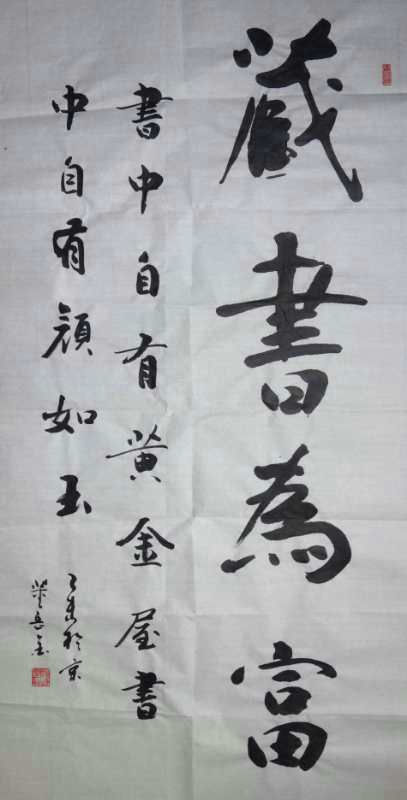 藏書為富
書中自有黃金屋書
中自有顏如玉
於京